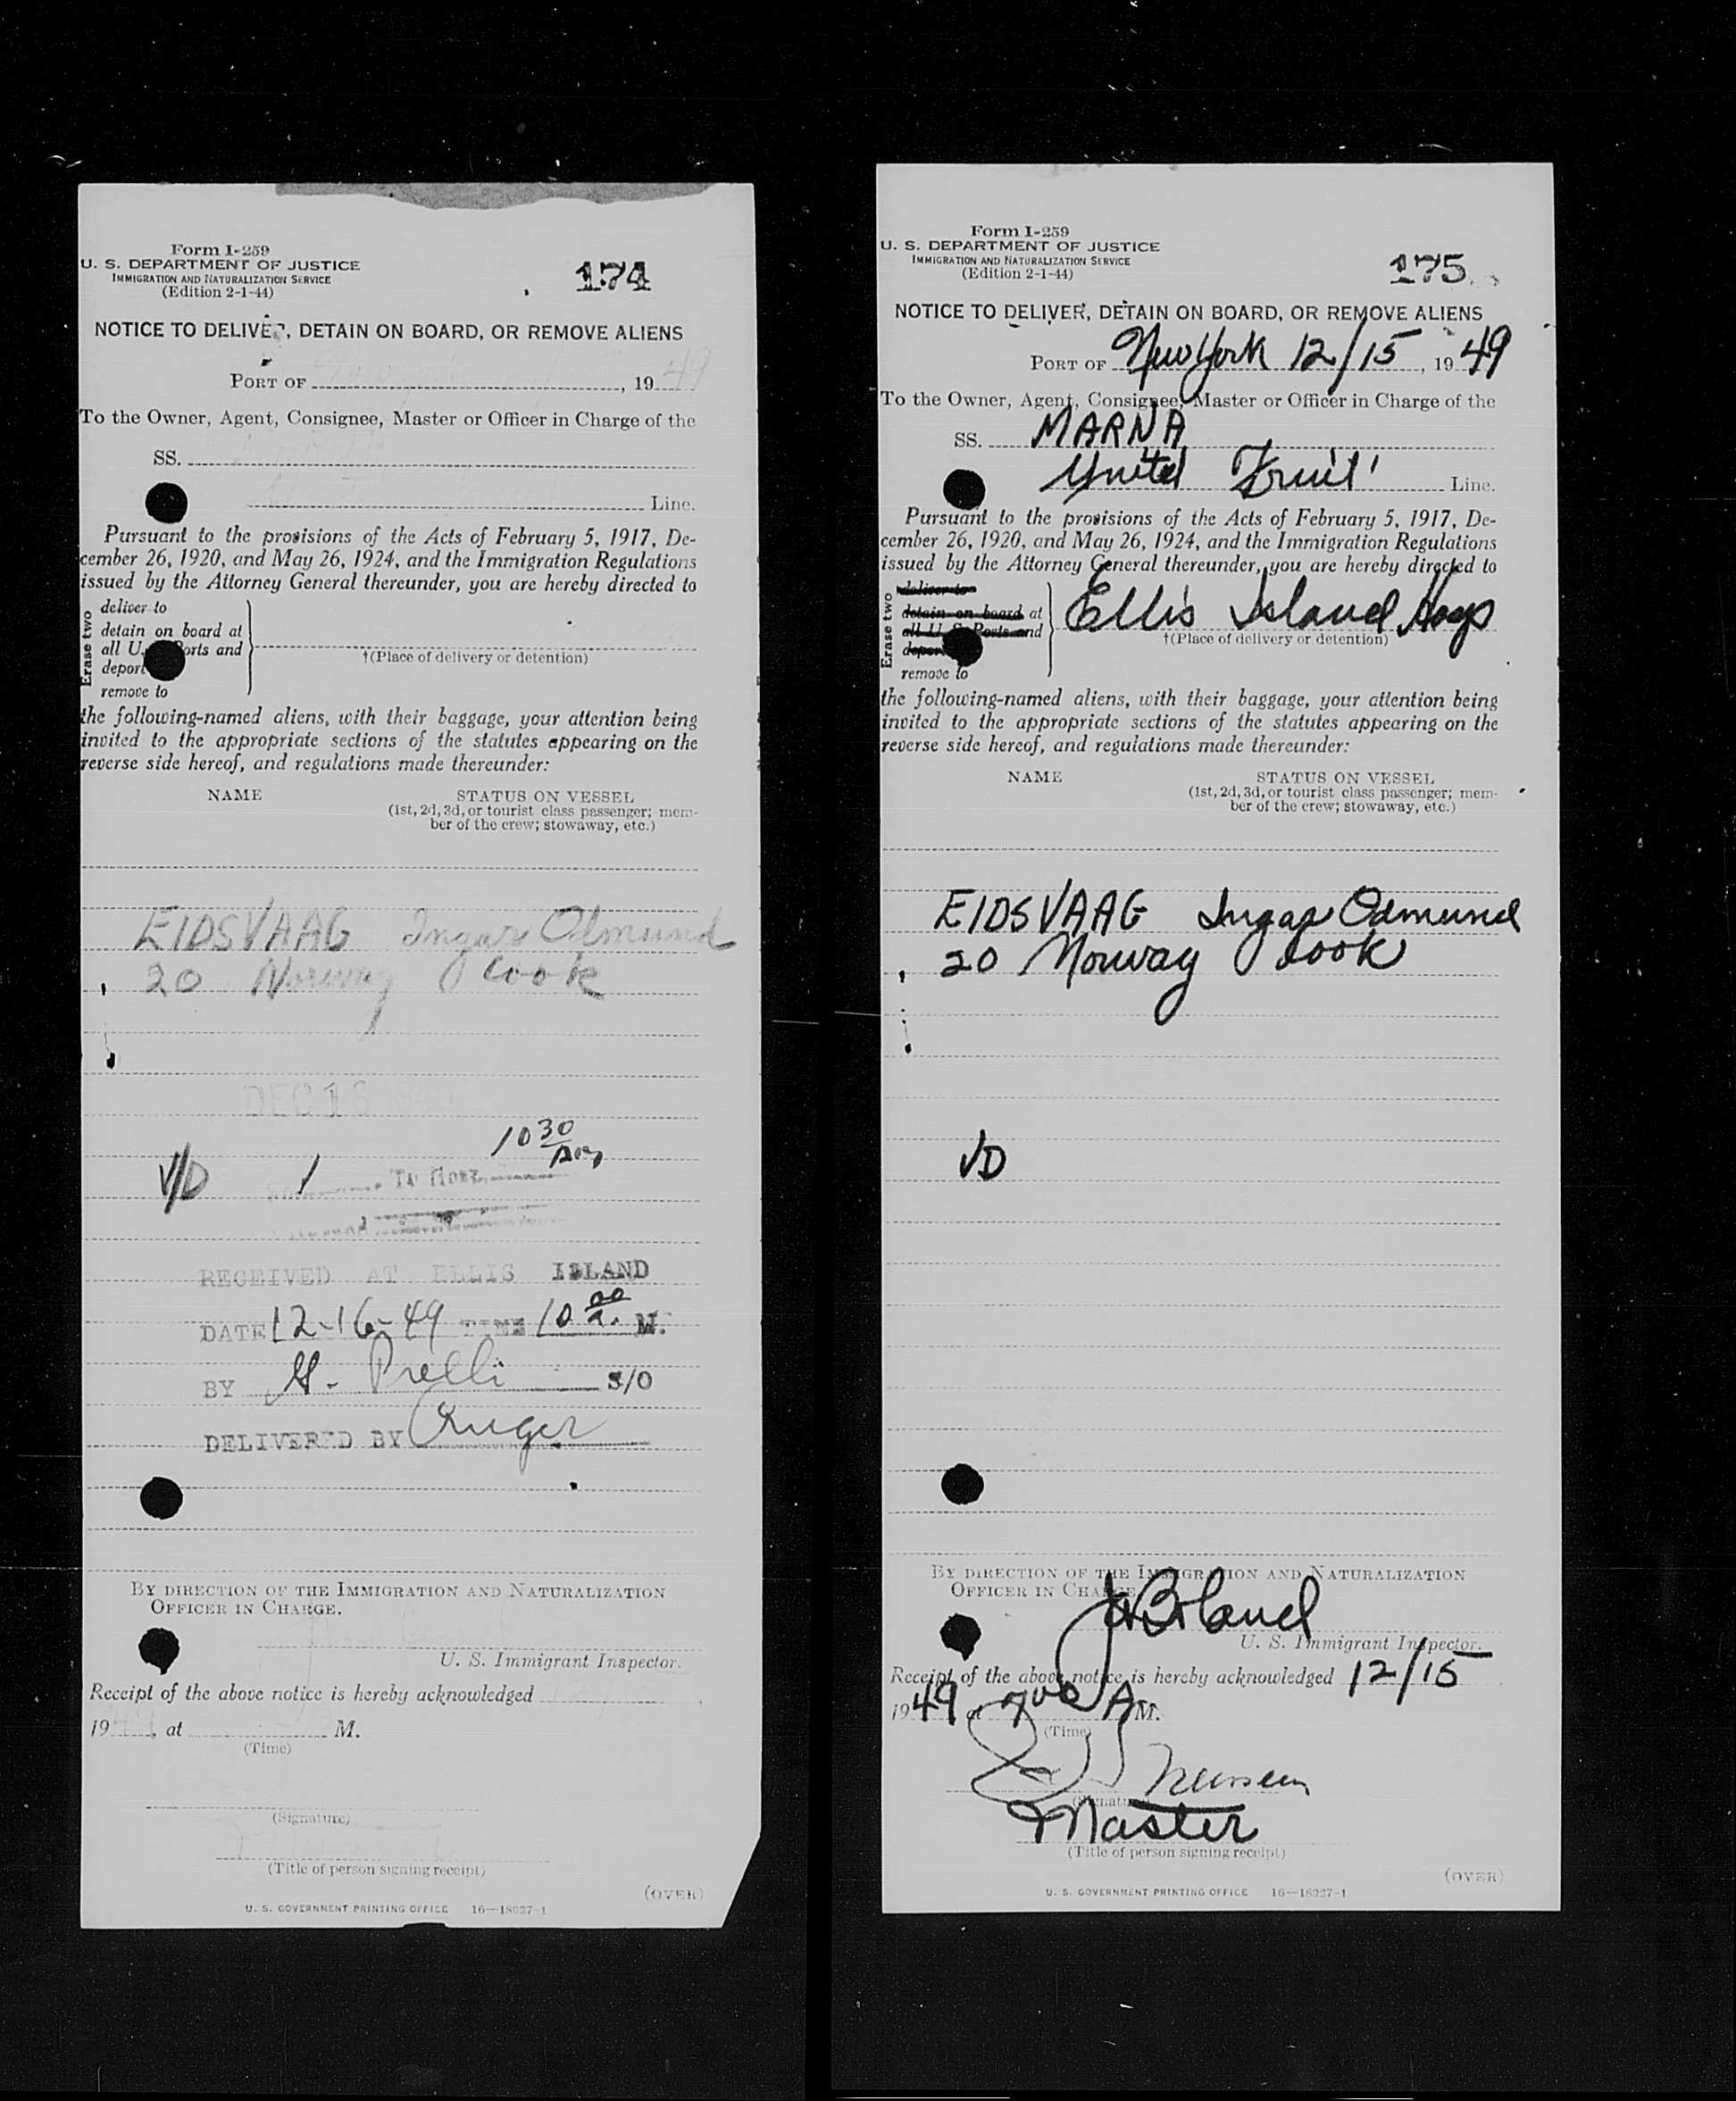 Form I-259
U. S. DEPARTMENT OF JUSTICE
IMMIGRATION AND NATURALIZATION SERVICE
(Edition 2-1-44)
174
NOTICE TO DELIVER, DETAIN ON BOARD, OR REMOVE ALIENS
PORT OF , 19 49
To the Owner, Agent, Consignee, Master or Officer in Charge of the
SS.
Line.
Pursuant to the provisions of the Acts of February 5, 1917, De-
cember 26, 1920, and May 26, 1924, and the Immigration Regulations
issued by the Attorney General thereunder, you are hereby directed to
Erase two
deliver to
detain on board at
all U. Ports and
deport
remove to
†(Place of delivery or detention)
the following-named aliens, with their baggage, your attention being
invited to the appropriate sections of the statutes appearing on the
reverse side hereof, and regulations made thereunder:
NAME STATUS ON VESSEL
(1st, 2d, 3d, or tourist class passenger; mem-
ber of the crew; stowaway, etc.)
EIDSVAAG Ingar Odmund
20 Norway Cook
DEC 16
10 30
AM
VD 1
RECEIVED AT ELLIS ISLAND
DATE 12-16-49 TIME 10 00 a. M.
BY Prelli S/O
DELIVERED BY
BY DIRECTION OF THE IMMIGRATION AND NATURALIZATION
OFFICER IN CHARGE.
U. S. Immigrant Inspector.
Receipt of the above notice is hereby acknowledged
19 , at M.
(Time)
(Signature)
(Title of person signing receipt)
(OVER)
U. S. GOVERNMENT PRINTING OFFICE 16—18927-1
Form I-259
U. S. DEPARTMENT OF JUSTICE
IMMIGRATION AND NATURALIZATION SERVICE
(Edition 2-1-44)
175
NOTICE TO DELIVER, DETAIN ON BOARD, OR REMOVE ALIENS
PORT OF New York 12/15, 19 49
To the Owner, Agent, Consignee, Master or Officer in Charge of the
SS. MARNA
United Fruit Line.
Pursuant to the provisions of the Acts of February 5, 1917, De-
cember 26, 1920, and May 26, 1924, and the Immigration Regulations
issued by the Attorney General thereunder, you are hereby directed to
Erase two
deliver to
detain on board at
all U. S. Ports and
deport
remove to
Ellis Island Hosp
†(Place of delivery or detention)
the following-named aliens, with their baggage, your attention being
invited to the appropriate sections of the statutes appearing on the
reverse side hereof, and regulations made thereunder:
NAME STATUS ON VESSEL
(1st, 2d, 3d, or tourist class passenger; mem-
ber of the crew; stowaway, etc.)
EIDSVAAG Ingar Odmund
20 Norway Cook
VD
BY DIRECTION OF THE IMMIGRATION AND NATURALIZATION
OFFICER IN CHARGE
U. S. Immigrant Inspector.
Receipt of the above notice is hereby acknowledged 12/15
1949 at 7 00 A M.
(Time)
(Signature)
Master
(Title of person signing receipt)
(OVER)
U. S. GOVERNMENT PRINTING OFFICE 16—18927-1